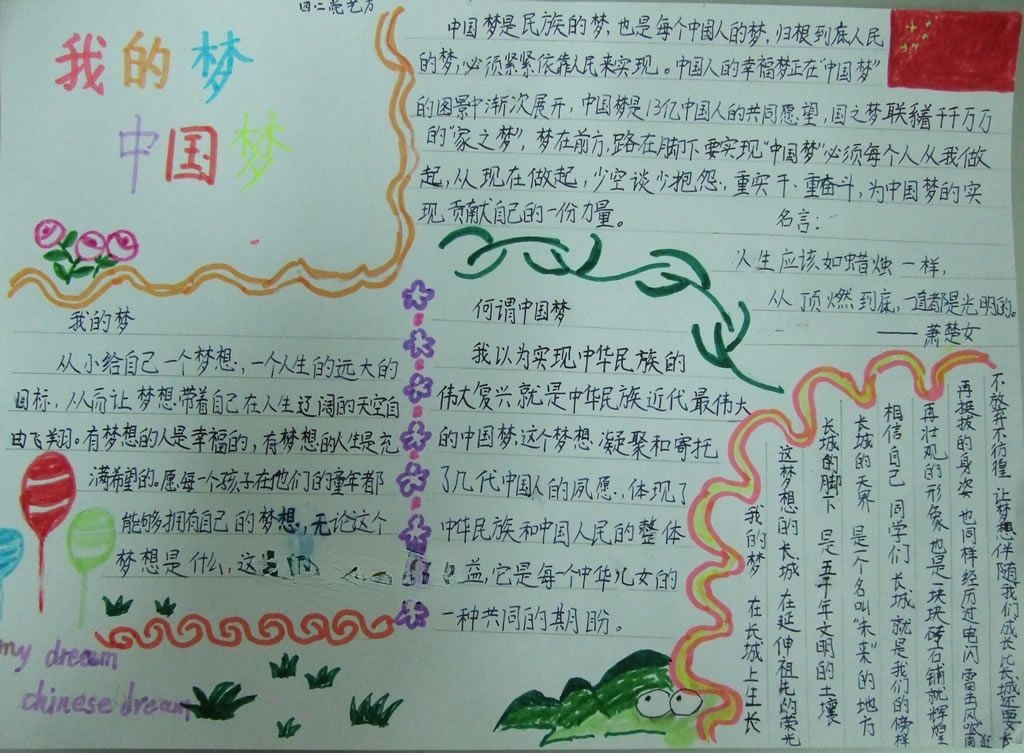 我的梦
中国梦
中国梦是民族的梦,也是每个中国人的梦,归根到底人民
的梦,必须紧紧依靠人民来实现。中国人的幸福梦正在“中国梦”
的图景中渐次展开,中国梦是13亿中国人的共同愿望,国之梦联系着千千万万
的“家之梦”,梦在前方,路在脚下,要实现“中国梦”必须每个人从我做
起,从现在做起,少空谈少抱怨,重实干、重奋斗,为中国梦的实
现贡献自己的一份力量。
名言:
人生应该如蜡烛一样,
从顶燃到底,一直都是光明的。
——萧楚女
我的梦
从小给自己一个梦想,一个人生的远大的
目标,从而让梦想带着自己在人生辽阔的天空自
由飞翔。有梦想的人是幸福的,有梦想的人生是充
满希望的。愿每一个孩子在他们的童年都
能够拥有自己的梦想,无论这个
梦想是什么,这
何谓中国梦
我以为实现中华民族的
伟大复兴就是中华民族近代最伟大
的中国梦,这个梦想凝聚和寄托
了几代中国人的夙愿,体现了
中华民族和中国人民的整体
益,它是每个中华儿女的
一种共同的期盼。
我的梦 在长城上生长
这梦想的长城 在延伸祖先的荣光
长城的脚下 是五千年文明的土壤
长城的天界 是一个名叫“未来”的地方
相信自己 同学们 长城就是我们的榜样
再壮观的形象 也是块块砖石铺就辉煌
再挺拔的身姿 也同样经历过电闪雷击风吹雨
不放弃不彷徨 让梦想伴随我们成长比长城还要长
my dream
chinese dream